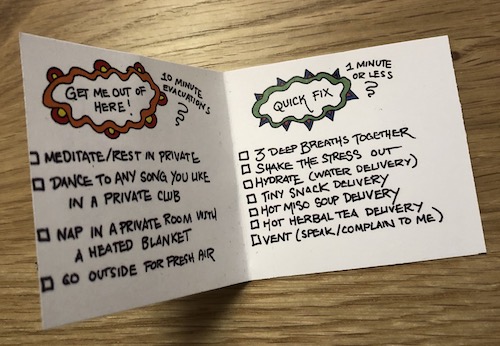 GET ME OUT OF
HERE!
10 MINUTE
EVACUATIONS
MEDITATE/REST IN PRIVATE
DANCE TO ANY SONG YOU LIKE
IN A PRIVATE CLUB
NAP IN A PRIVATE ROOM WITH
A HEATED BLANKET
GO OUTSIDE FOR FRESH AIR
QUICK FIX
1 MINUTE
OR LESS
3 DEEP BREATHS TOGETHER
SHAKE THE STRESS OUT
HYDRATE (WATER DELIVERY)
TINY SNACK DELIVERY
HOT MISO SOUP DELIVERY
HOT HERBAL TEA DELIVERY
VENT (SPEAK/COMPLAIN TO ME)